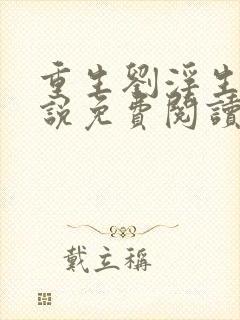 重生劉淫生
說免費閱讀
戴立稱